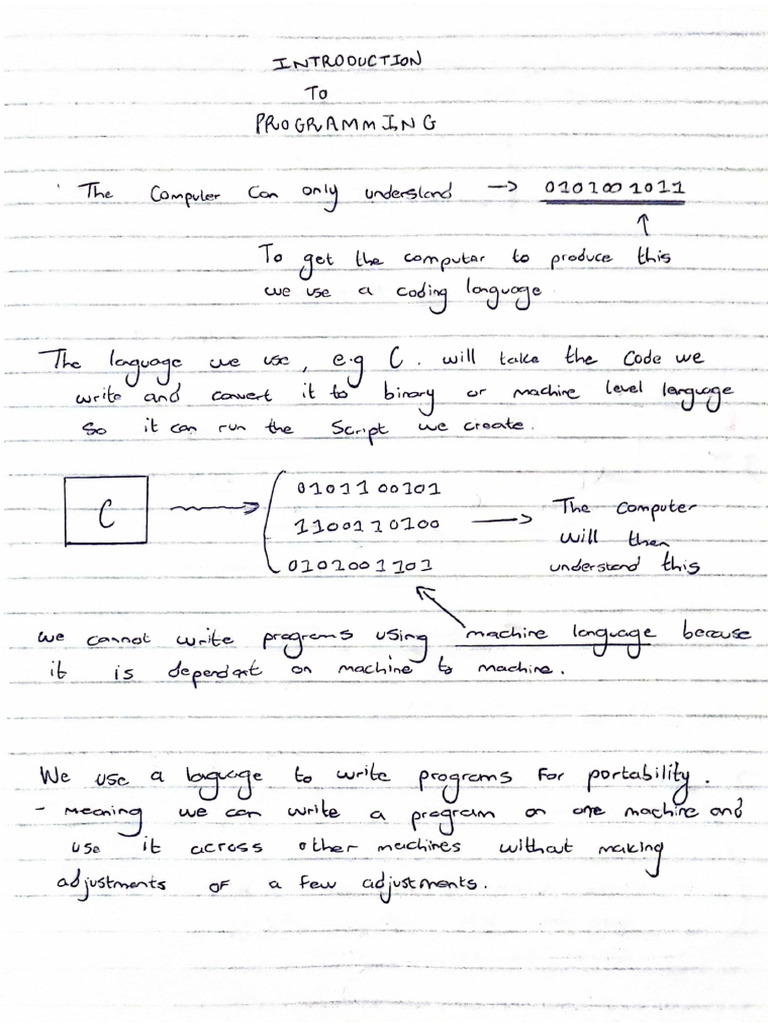 INTRODUCTION
TO
PROGRAMMING
The Computer Can only understand → 0101001011
↑
To get the computer to produce this
we use a coding language.
The language we use, e.g C. will take the code we
write and convert it to binary or machine level language
So it can run the Script we create.
C → 0101100101
1100110100 → The computer
will then
0101001101 understand this
we cannot write programs using machine language because
it is dependant on machine to machine.
We use a language to write programs for portability.
- Meaning we can write a program on one machine and
use it across other machines without making
adjustments of a few adjustments.